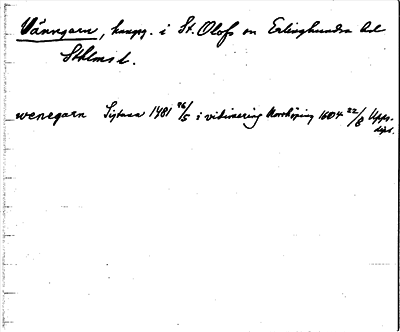 Vänngarn, kungsg. i St. Olofs sn Erlinghundra hd
Sthlms l.
wenegarn Sigtuna 1481 26/5 i vidimering Norrköping 1604 22/8 Upps.
dipl.